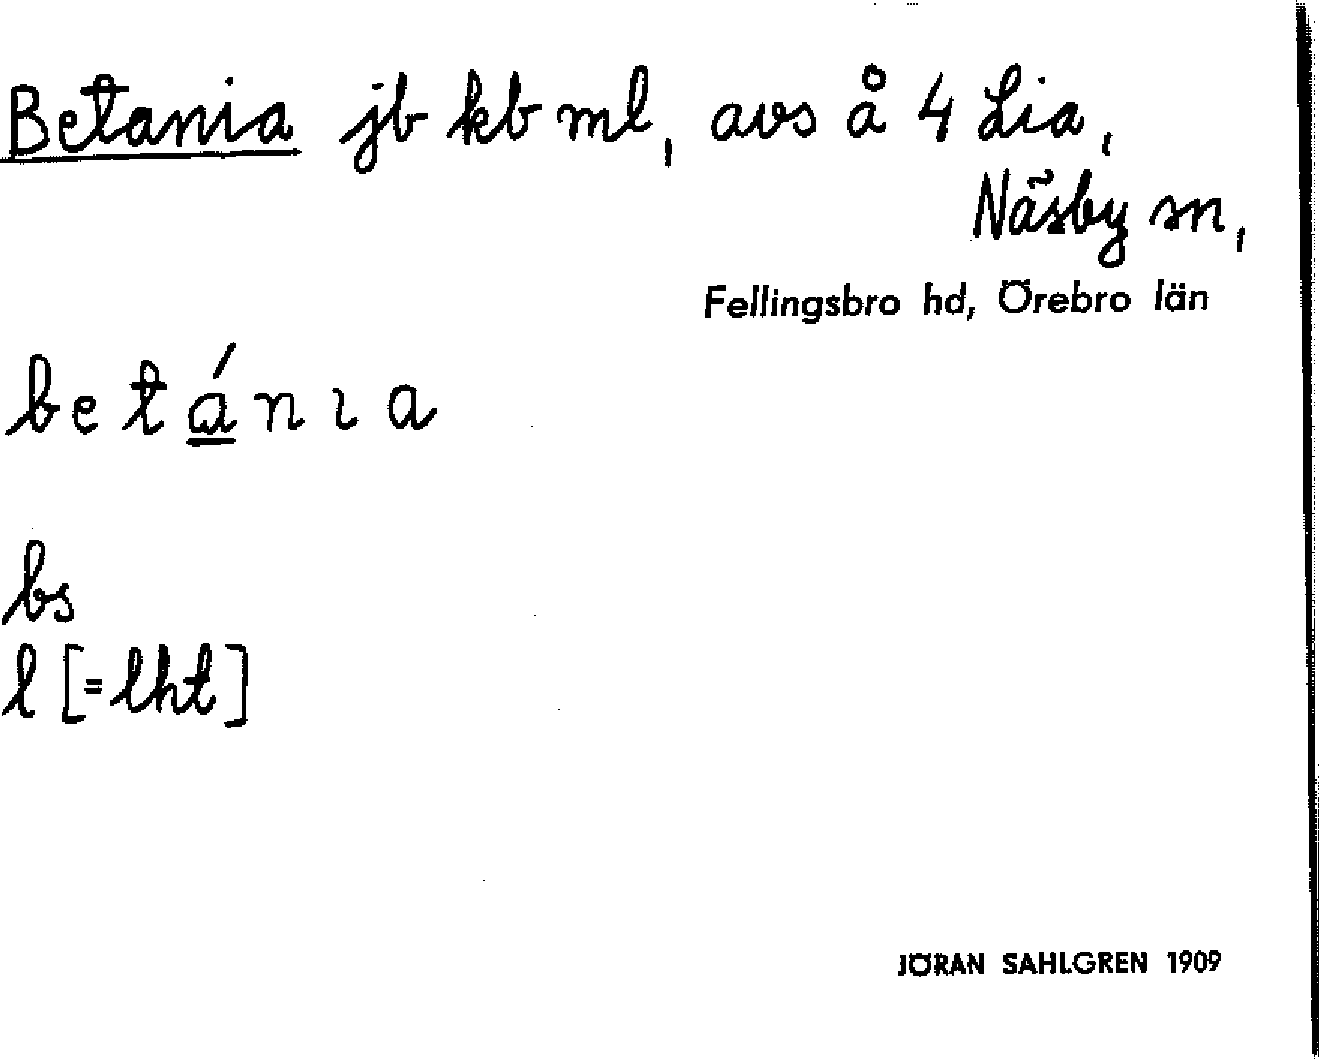 Betania jb kb ml, avs å 4 Lia,
Näsby sn,
Fellingsbro hd, Örebro län
betánıa
bs
l [=lht]
JÖRAN SAHLGREN 1909